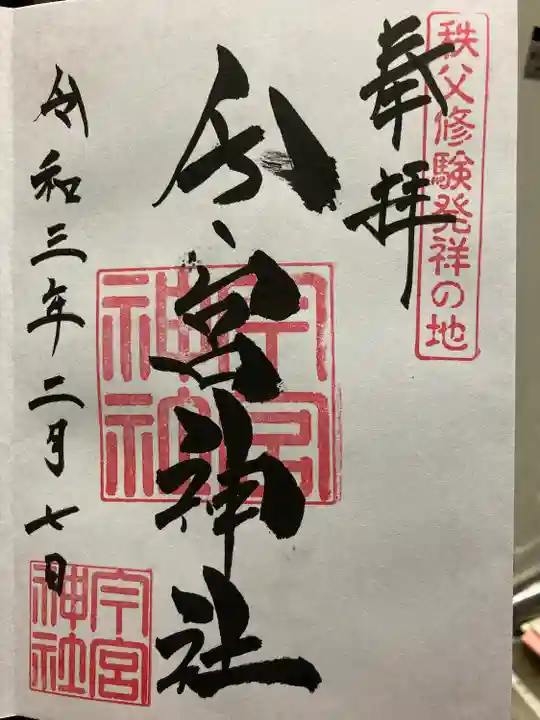 秩父修験発祥の地
奉拝
今宮神社
今宮神社
令和三年二月七日
今宮
神社